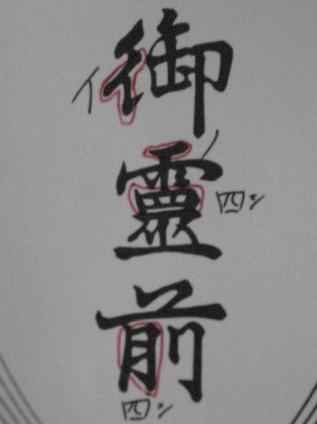 御靈前
イ
四ツ
四ツ